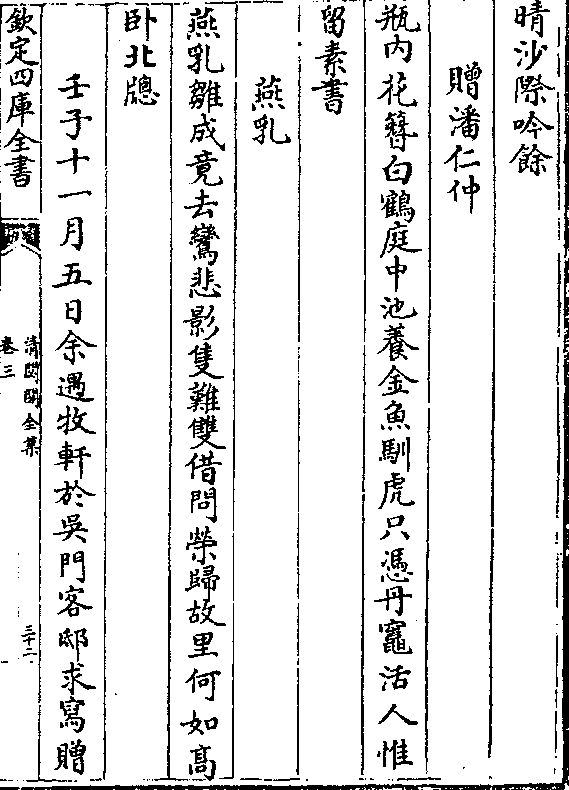 晴沙際吟餘
贈潘仁仲
瓶内花簪白鶴庭中池養金魚馴虎只憑丹竈活人惟
留素書
燕乳
燕乳雛成竟去鸞悲影隻難雙借問榮歸故里何如髙
卧北牕
壬子十一月五日余遇牧軒於吳門客邸求寫贈
欽定四庫全書
清閟閣全集
卷三
三十二